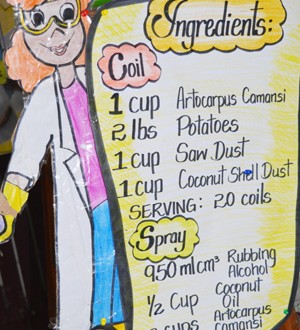 Ingredients:
Coil
1 cup Artocarpus Camansi
2 lbs Potatoes
1 cup Saw Dust
1 cup Coconut Shell Dust
SERVING: 20 coils
Spray
950 ml cm³ Rubbing Alcohol
1/2 Cup Coconut Oil
cups Artocarpus camansi